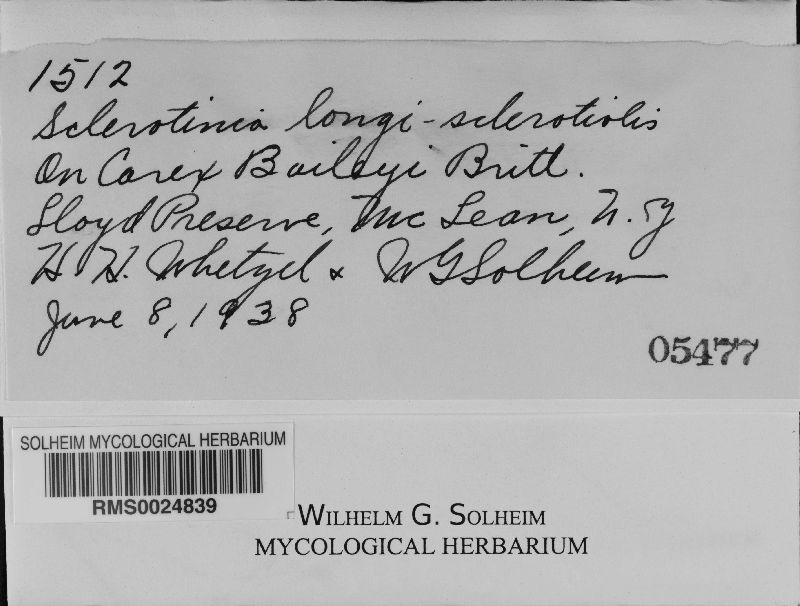 1512
Sclerotinia longi-sclerotiolis
On Carex Baileyi Britt.
Lloyd Preserve, Mc Lean, N. Y
H H. Whetzel & WGSolheim
June 8, 1938
05477
SOLHEIM MYCOLOGICAL HERBARIUM
RMS0024839
WILHELM G. SOLHEIM
MYCOLOGICAL HERBARIUM